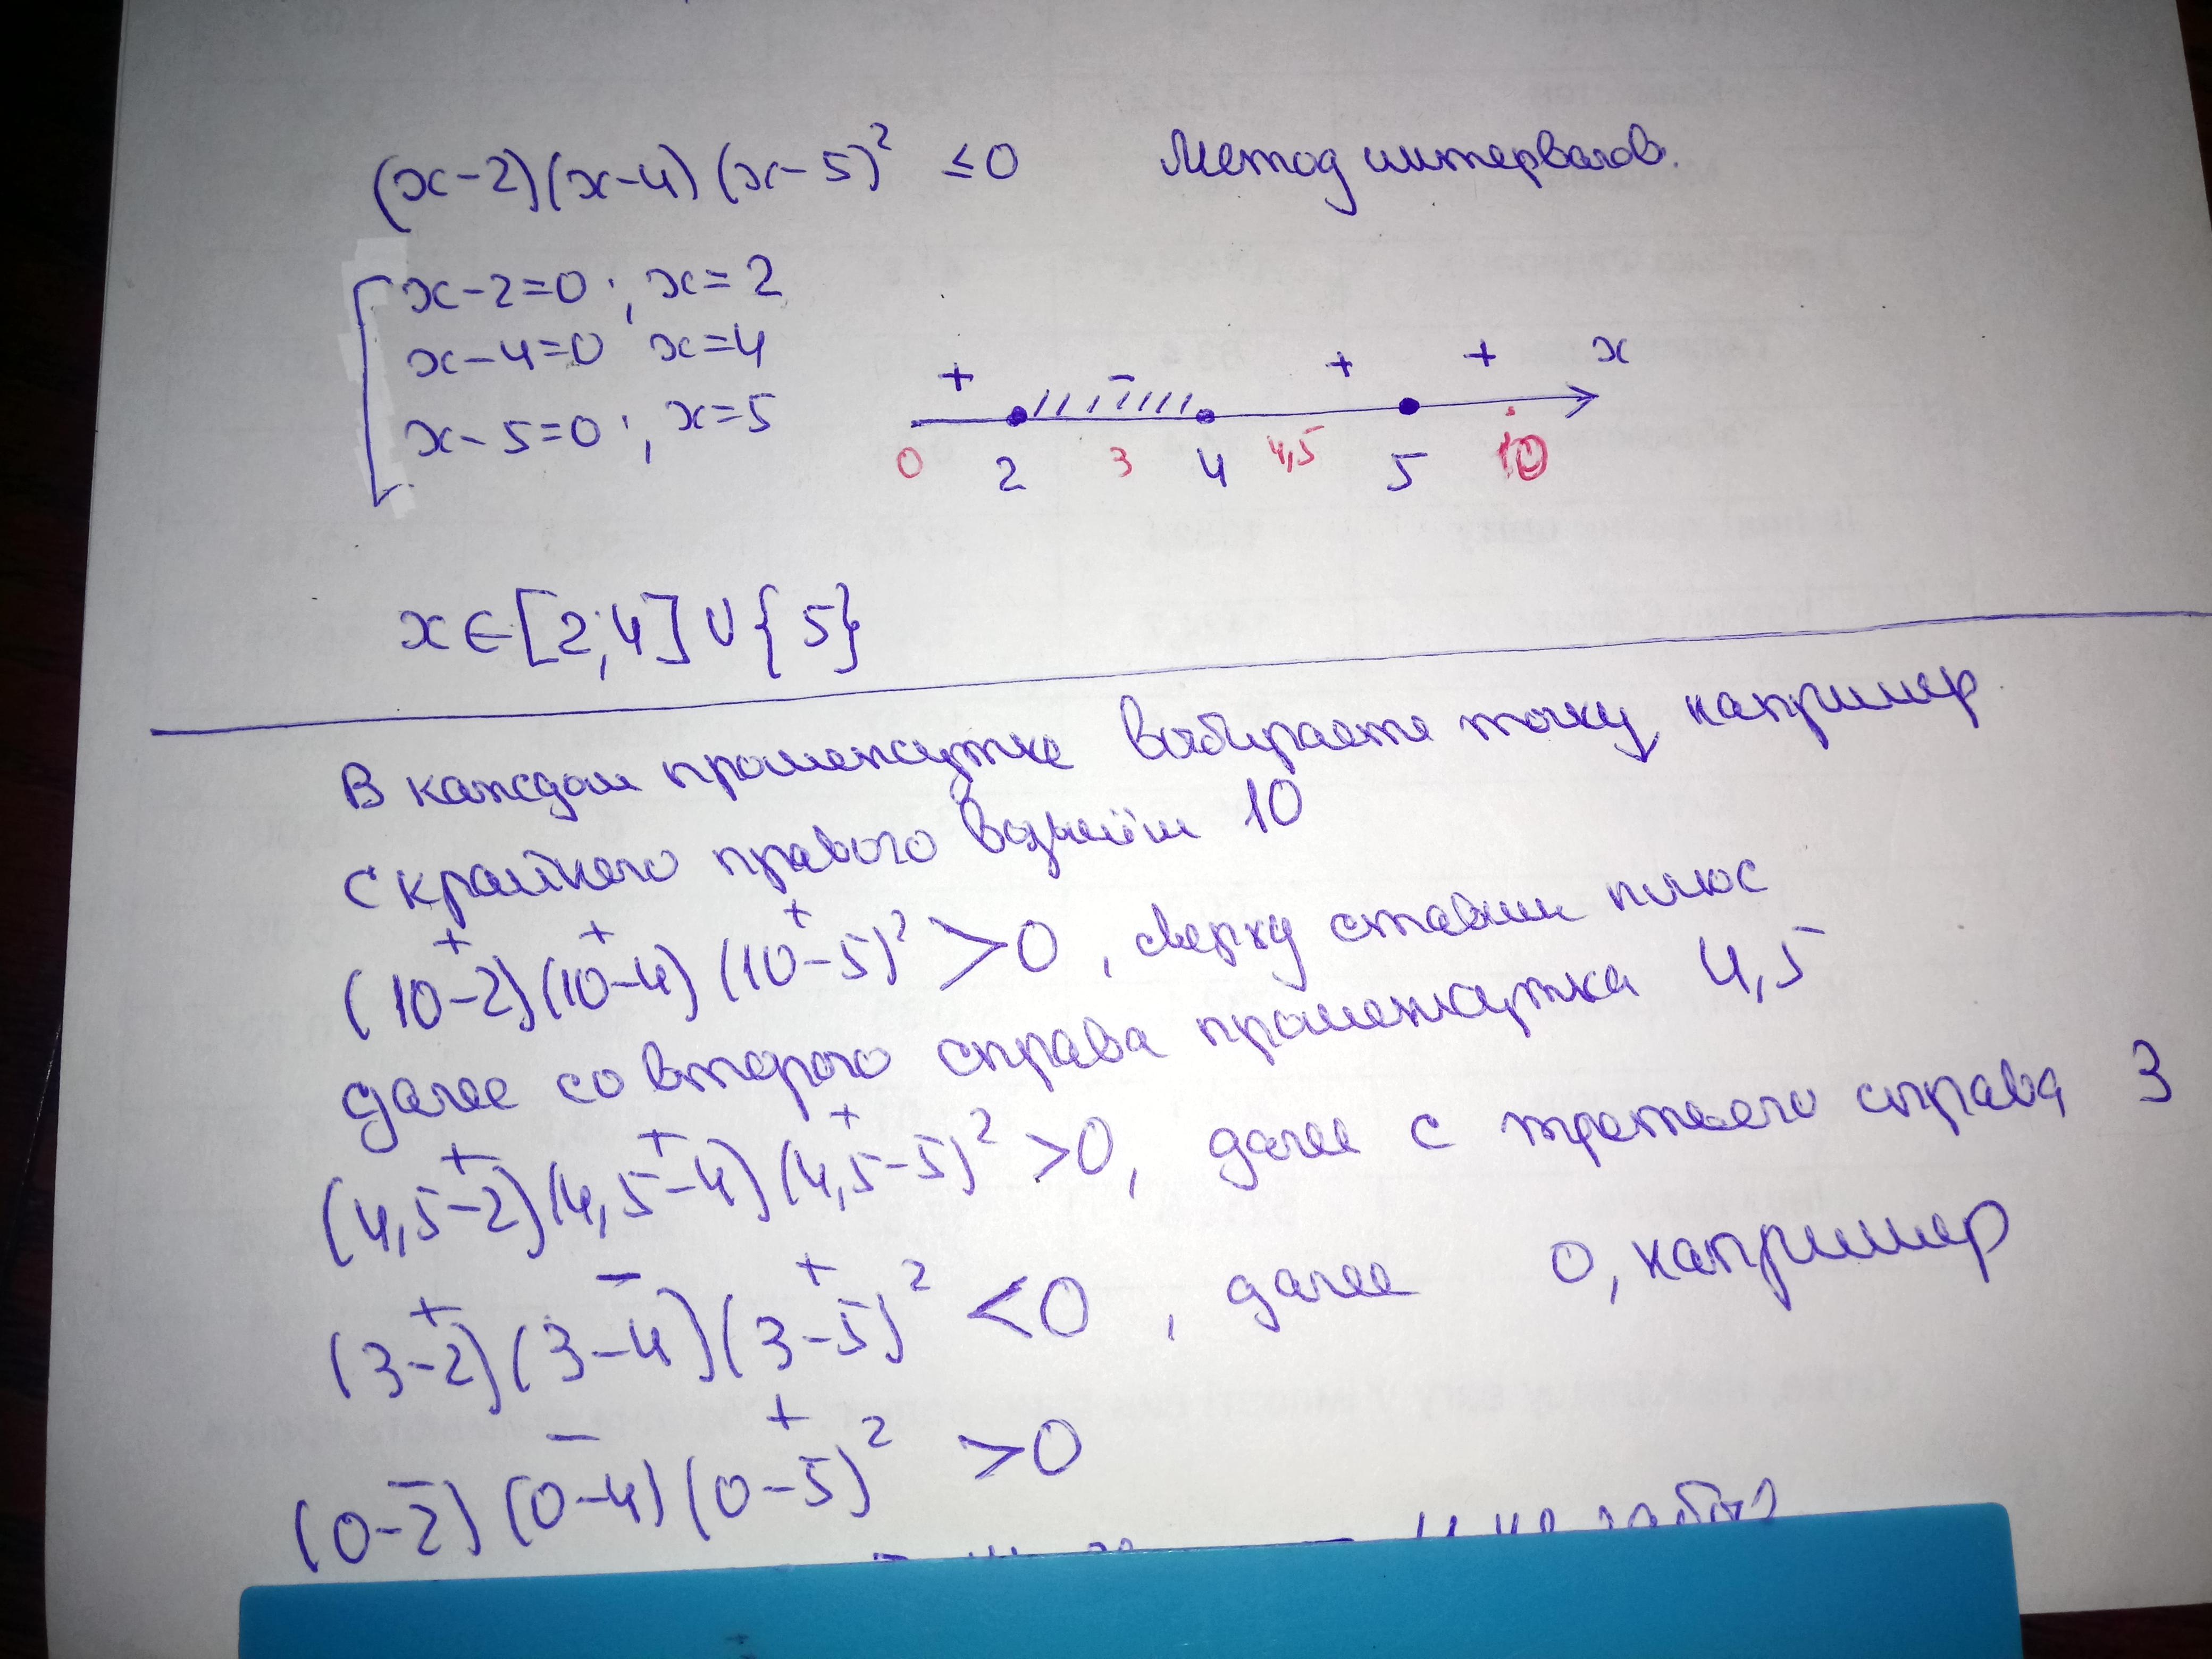 (x-2)(x-4)(x-5)² ≤0 Метод интервалов.
x-2=0; x=2
x-4=0 x=4
x-5=0; x=5
+ - + + x
0 2 3 4 4,5 5 10
x∈[2;4]∪{5}
В каждом промежутке выбираете точку, например
с крайнего правого возьмём 10
+ + +
(10-2)(10-4)(10-5)² >0, сверху ставим плюс
далее со второго справа промежутка 4,5
+ + +
(4,5-2)(4,5-4)(4,5-5)² >0, далее с третьего справа 3
+ - +
(3-2)(3-4)(3-5)² <0, далее 0, например
- - +
(0-2)(0-4)(0-5)² >0